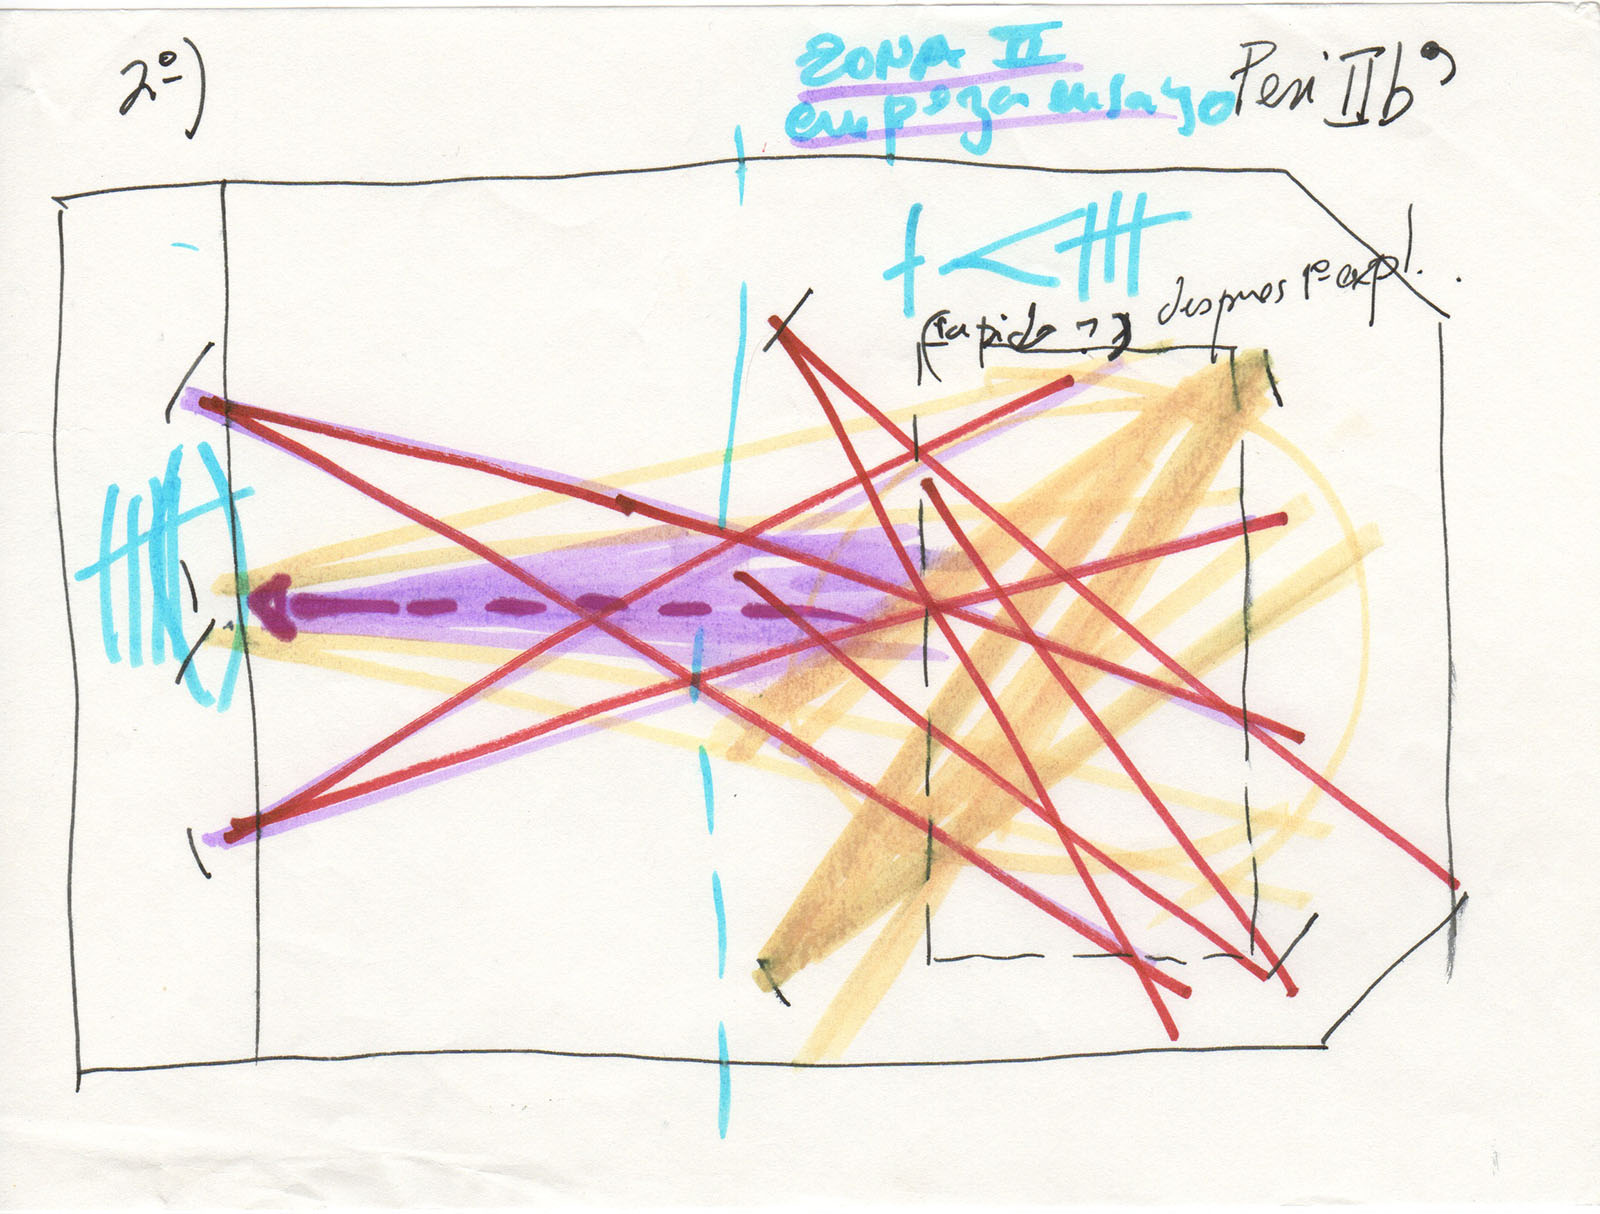 2º)
ZONA II
empeza ensayo
Peri IIb
(rapido
despues 1ª expl.